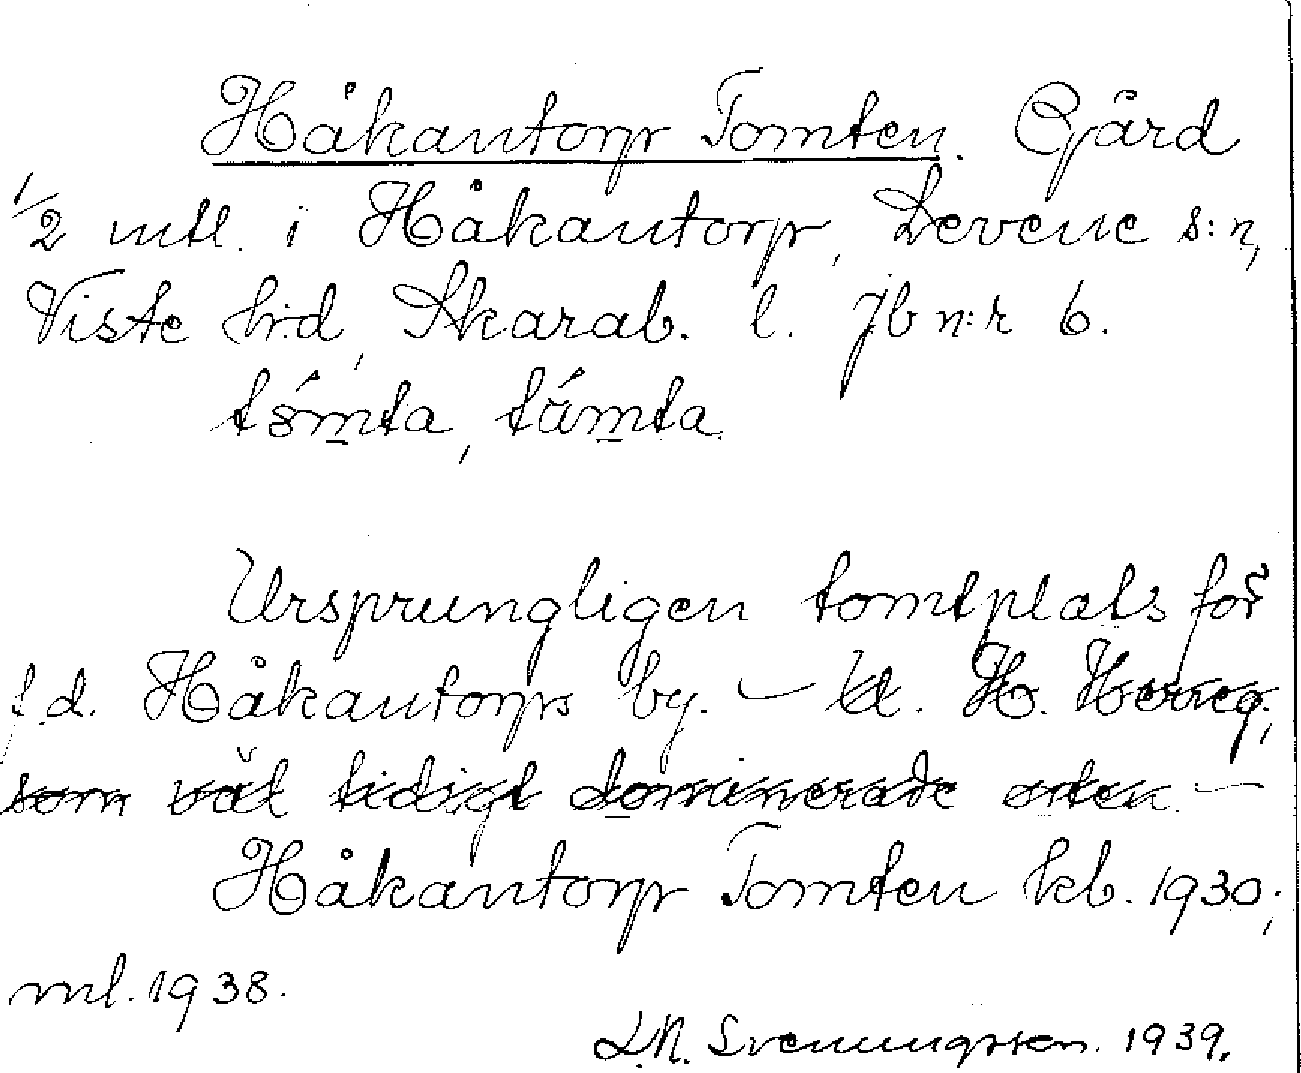 Håkantorp Tomten. Gård
1/2 mtl. i Håkantorp, Levene s:n,
Viste hd, Skarab. l. Jb n:r 6.
tómta, támta
Ursprungligen tomtplats för
f.d. Håkantorps by. – H. Herreg.,
som väl tidigt dominerade orten. –
Håkantorp Tomten kb. 1930;
ml. 1938.
Svenungsson. 1939.